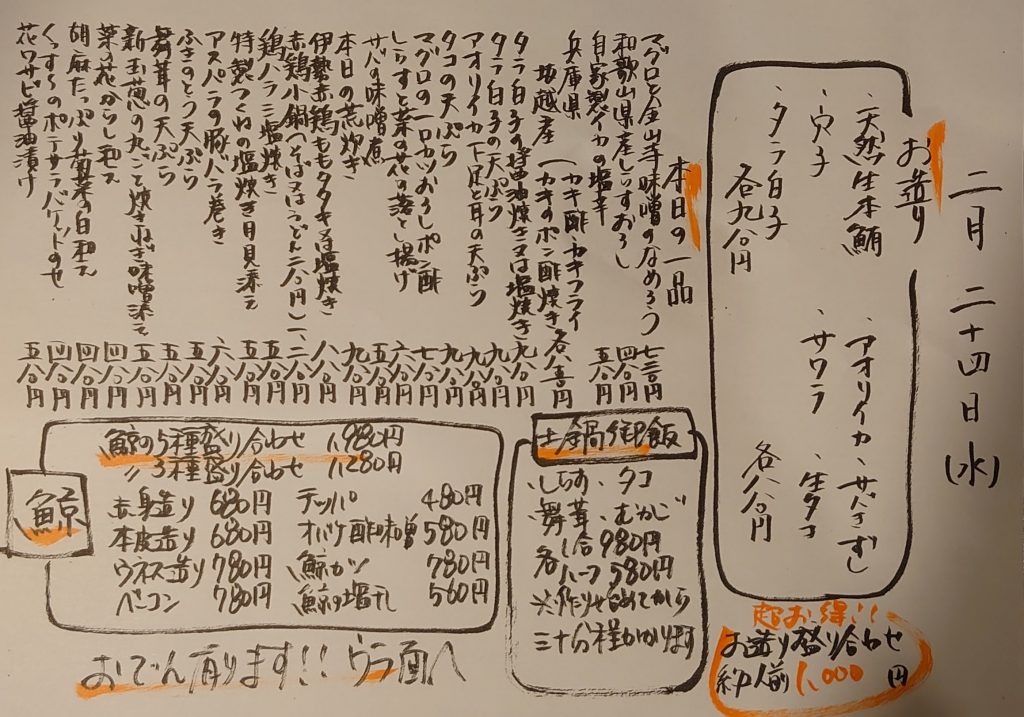 二月二十四日(水)
お造り
・天然生本鮪
・穴子
・タラ白子
各九八〇円
・アオリイカ・サバきずし
・サワラ ・生タコ
各八八〇円
超お得!!
お造り盛り合わせ
1,000円
本日の一品
マグロと金山寺味噌のなめろう 七三〇円
和歌山県産しらすおろし 四八〇円
自家製イカの塩辛 五八〇円
兵庫県
坂越産 (カキ酢・カキフライ
カキのポン酢焼き
タラ白子の醤油焼き又は塩焼き 九八〇円
タラ白子の天ぷら 九八〇円
アオリイカ下足と耳の天ぷら 九八〇円
タコの天ぷら 九八〇円
マグロの一口カツおろしポン酢 七八〇円
しらすと菜の花の落し揚げ 六八〇円
サバの味噌煮 五八〇円
本日の荒炊き 九八〇円
伊勢赤鶏ももタタキ又は塩焼き 八八〇円
赤鶏小鍋(そば又はうどん二八〇円) 一、二八〇円
鶏ハラミ塩焼き 五八〇円
特製つくねの塩焼き月見添え 五八〇円
アスパラの豚バラ巻き 六八〇円
ふきのとう天ぷら 五八〇円
舞茸の天ぷら 五八〇円
新玉葱の丸ごと焼きねぎ味噌添え 五八〇円
菜の花からし和え 四八〇円
胡麻たっぷり菊菜の白和え 四八〇円
くっすーのポテサラバゲットのせ 四八〇円
花ワサビ醤油漬け 五八〇円
土鍋御飯
・しらす・タコ
・舞茸・むかご
各 1合 980円
ハーフ 580円
※作り始めてから
三十分程かかります
鯨
鯨の5種盛り合わせ 1,980円
〃 3種盛り合わせ 1,280円
赤身造り 680円
本皮造り 680円
ウネス造り 780円
ベーコン 780円
テッパ 480円
オバケ酢味噌 580円
鯨カツ 780円
鯨の塩干し 560円
おでん有ります!! ウラ面へ